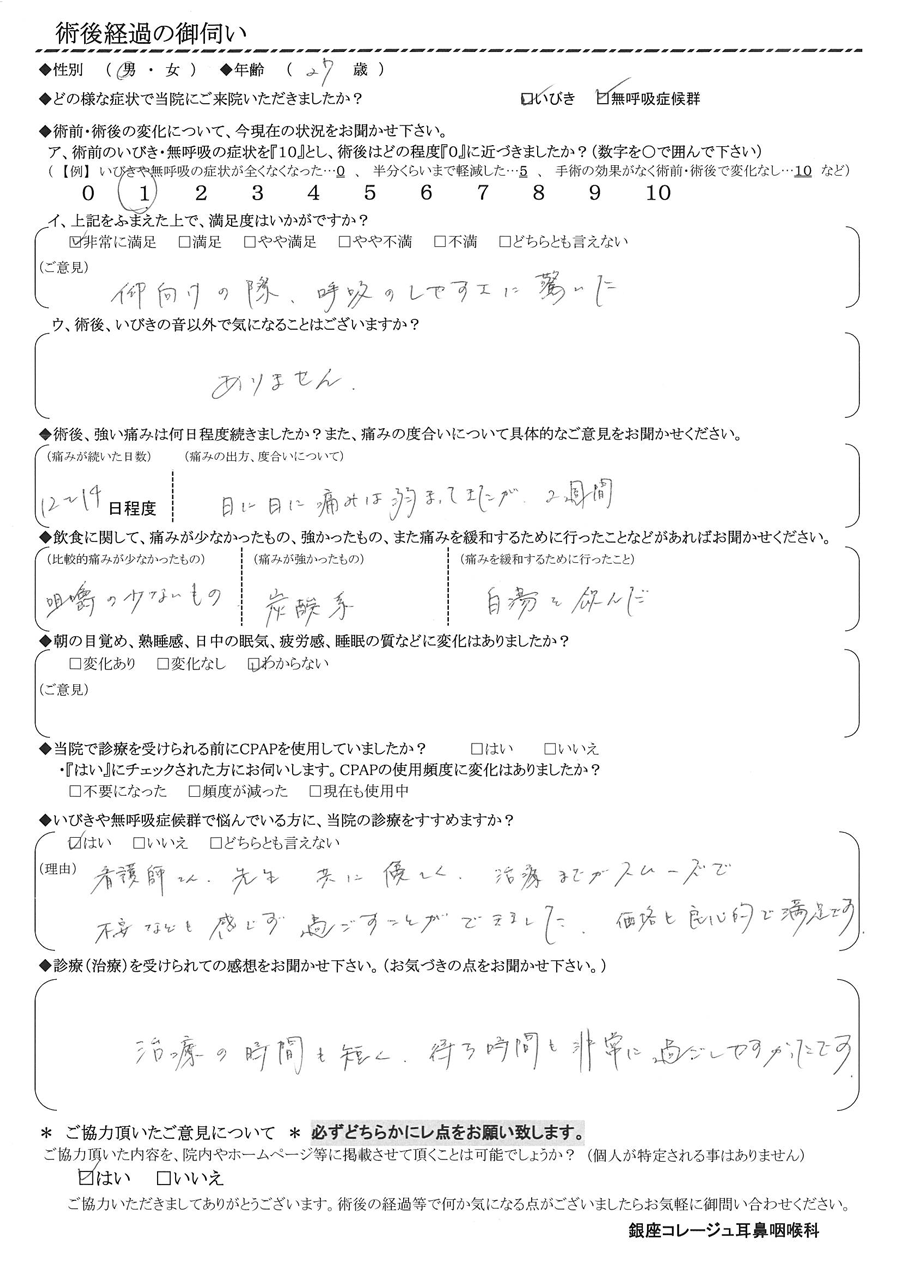 術後経過の御伺い
◆性別 （ 男 ・ 女 ） ◆年齢 （ 27 歳 ）
◆どの様な症状で当院にご来院いただきましたか？ ☑いびき ☑無呼吸症候群
◆術前・術後の変化について、今現在の状況をお聞かせ下さい。
ア、術前のいびき・無呼吸の症状を『10』とし、術後はどの程度『0』に近づきましたか？（数字を〇で囲んで下さい）
（【例】 いびきや無呼吸の症状が全くなくなった…0 、 半分くらいまで軽減した…5 、 手術の効果がなく術前・術後で変化なし…10 など）
0 1 2 3 4 5 6 7 8 9 10
イ、上記をふまえた上で、満足度はいかがですか？
☑非常に満足 □満足 □やや満足 □やや不満 □不満 □どちらとも言えない
（ご意見）
仰向けの際、呼吸のしやすさに驚いた
ウ、術後、いびきの音以外で気になることはございますか？
ありません.
◆術後、強い痛みは何日程度続きましたか？また、痛みの度合いについて具体的なご意見をお聞かせください。
（痛みが続いた日数） （痛みの出方、度合いについて）
12〜14 日程度 日に日に痛みは弱まってきたが、2週間
◆飲食に関して、痛みが少なかったもの、強かったもの、また痛みを緩和するために行ったことなどがあればお聞かせください。
（比較的痛みが少なかったもの） （痛みが強かったもの） （痛みを緩和するために行ったこと）
咀嚼の少ないもの 炭酸系 白湯を飲んだ
◆朝の目覚め、熟睡感、日中の眠気、疲労感、睡眠の質などに変化はありましたか？
□変化あり □変化なし ☑わからない
（ご意見）
◆当院で診療を受けられる前にCPAPを使用していましたか？ □はい □いいえ
・『はい』にチェックされた方にお伺いします。CPAPの使用頻度に変化はありましたか？
□不要になった □頻度が減った □現在も使用中
◆いびきや無呼吸症候群で悩んでいる方に、当院の診療をすすめますか？
☑はい □いいえ □どちらとも言えない
（理由） 看護師さん、先生 共に優しく、治療までがスムーズで
不安なども感じず過ごすことができました、価格も良心的で満足です.
◆診療（治療）を受けられての感想をお聞かせ下さい。（お気づきの点をお聞かせ下さい。）
治療の時間も短く、待ち時間も非常に過ごしやすかったです.
＊ ご協力頂いたご意見について ＊ 必ずどちらかにレ点をお願い致します。
ご協力頂いた内容を、院内やホームページ等に掲載させて頂くことは可能でしょうか？ （個人が特定される事はありません）
☑はい □いいえ
ご協力いただきましてありがとうございます。術後の経過等で何か気になる点がございましたらお気軽に御問い合わせください。
銀座コレージュ耳鼻咽喉科